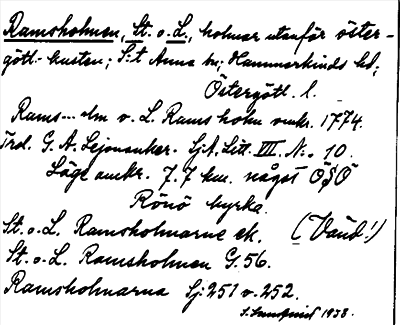 Ramsholmen, St. o. L., holmar utanför öster-
götl. kusten; S:t Anna sn; Hammarkinds hd;
Östergötl. l.
Rams--- o. L. Rams holm omkr. 1774.
Trol. G. A. Lejonanker. Sj.A. Litt. III. N:o 10.
Läge omkr. 7.7 km. något ÖSÖ
Rönö kyrka.
St. o. L. Ramsholmarne ek. (Vand!)
St. o. L. Ramsholmen G. 56.
Ramsholmarna Sj: 251 o. 252.
1938.